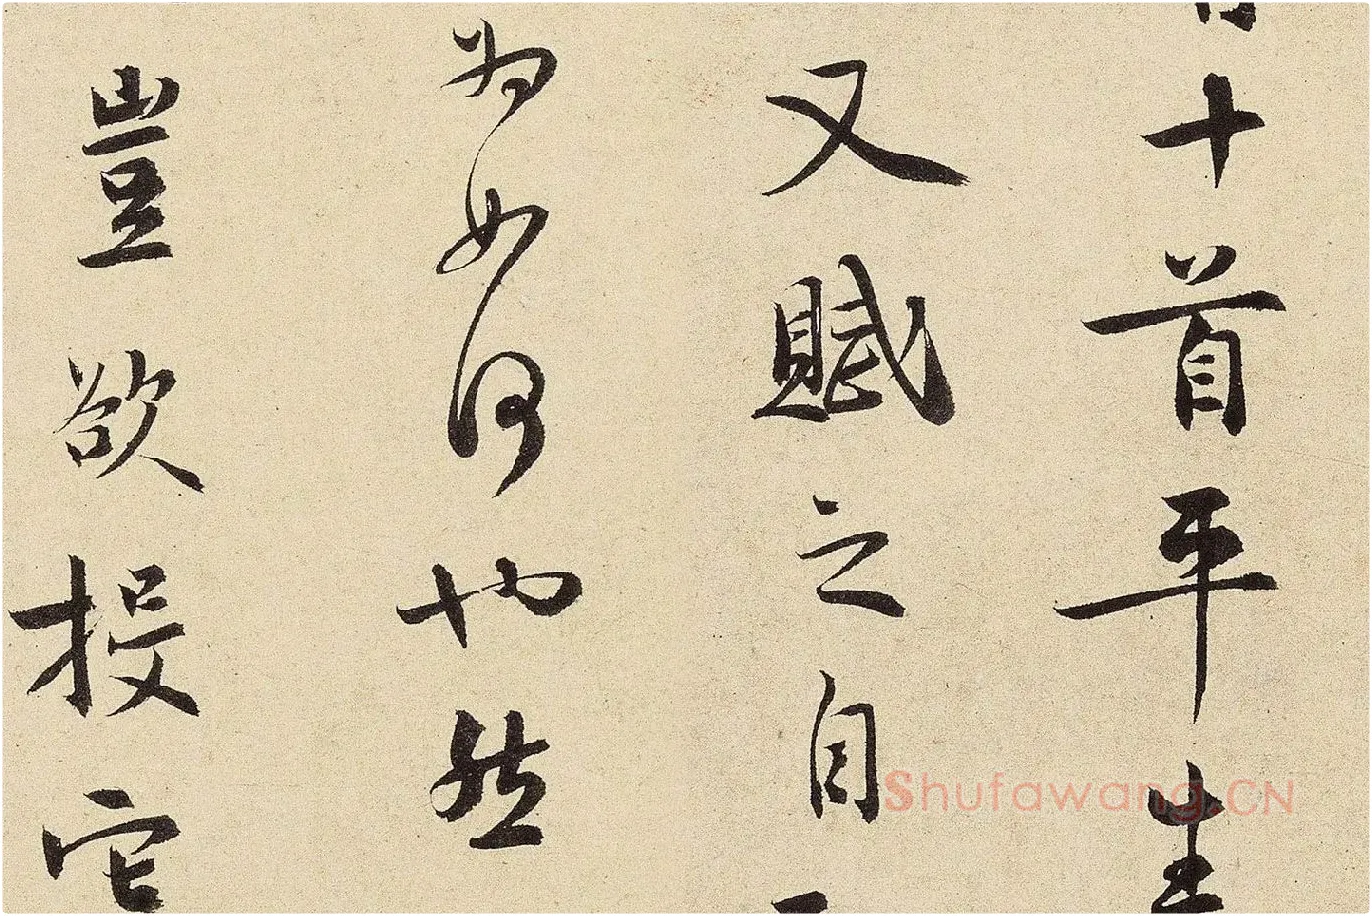 十首平生
又賦之自
为如何也然
豈欲投它
Shufawang.CN